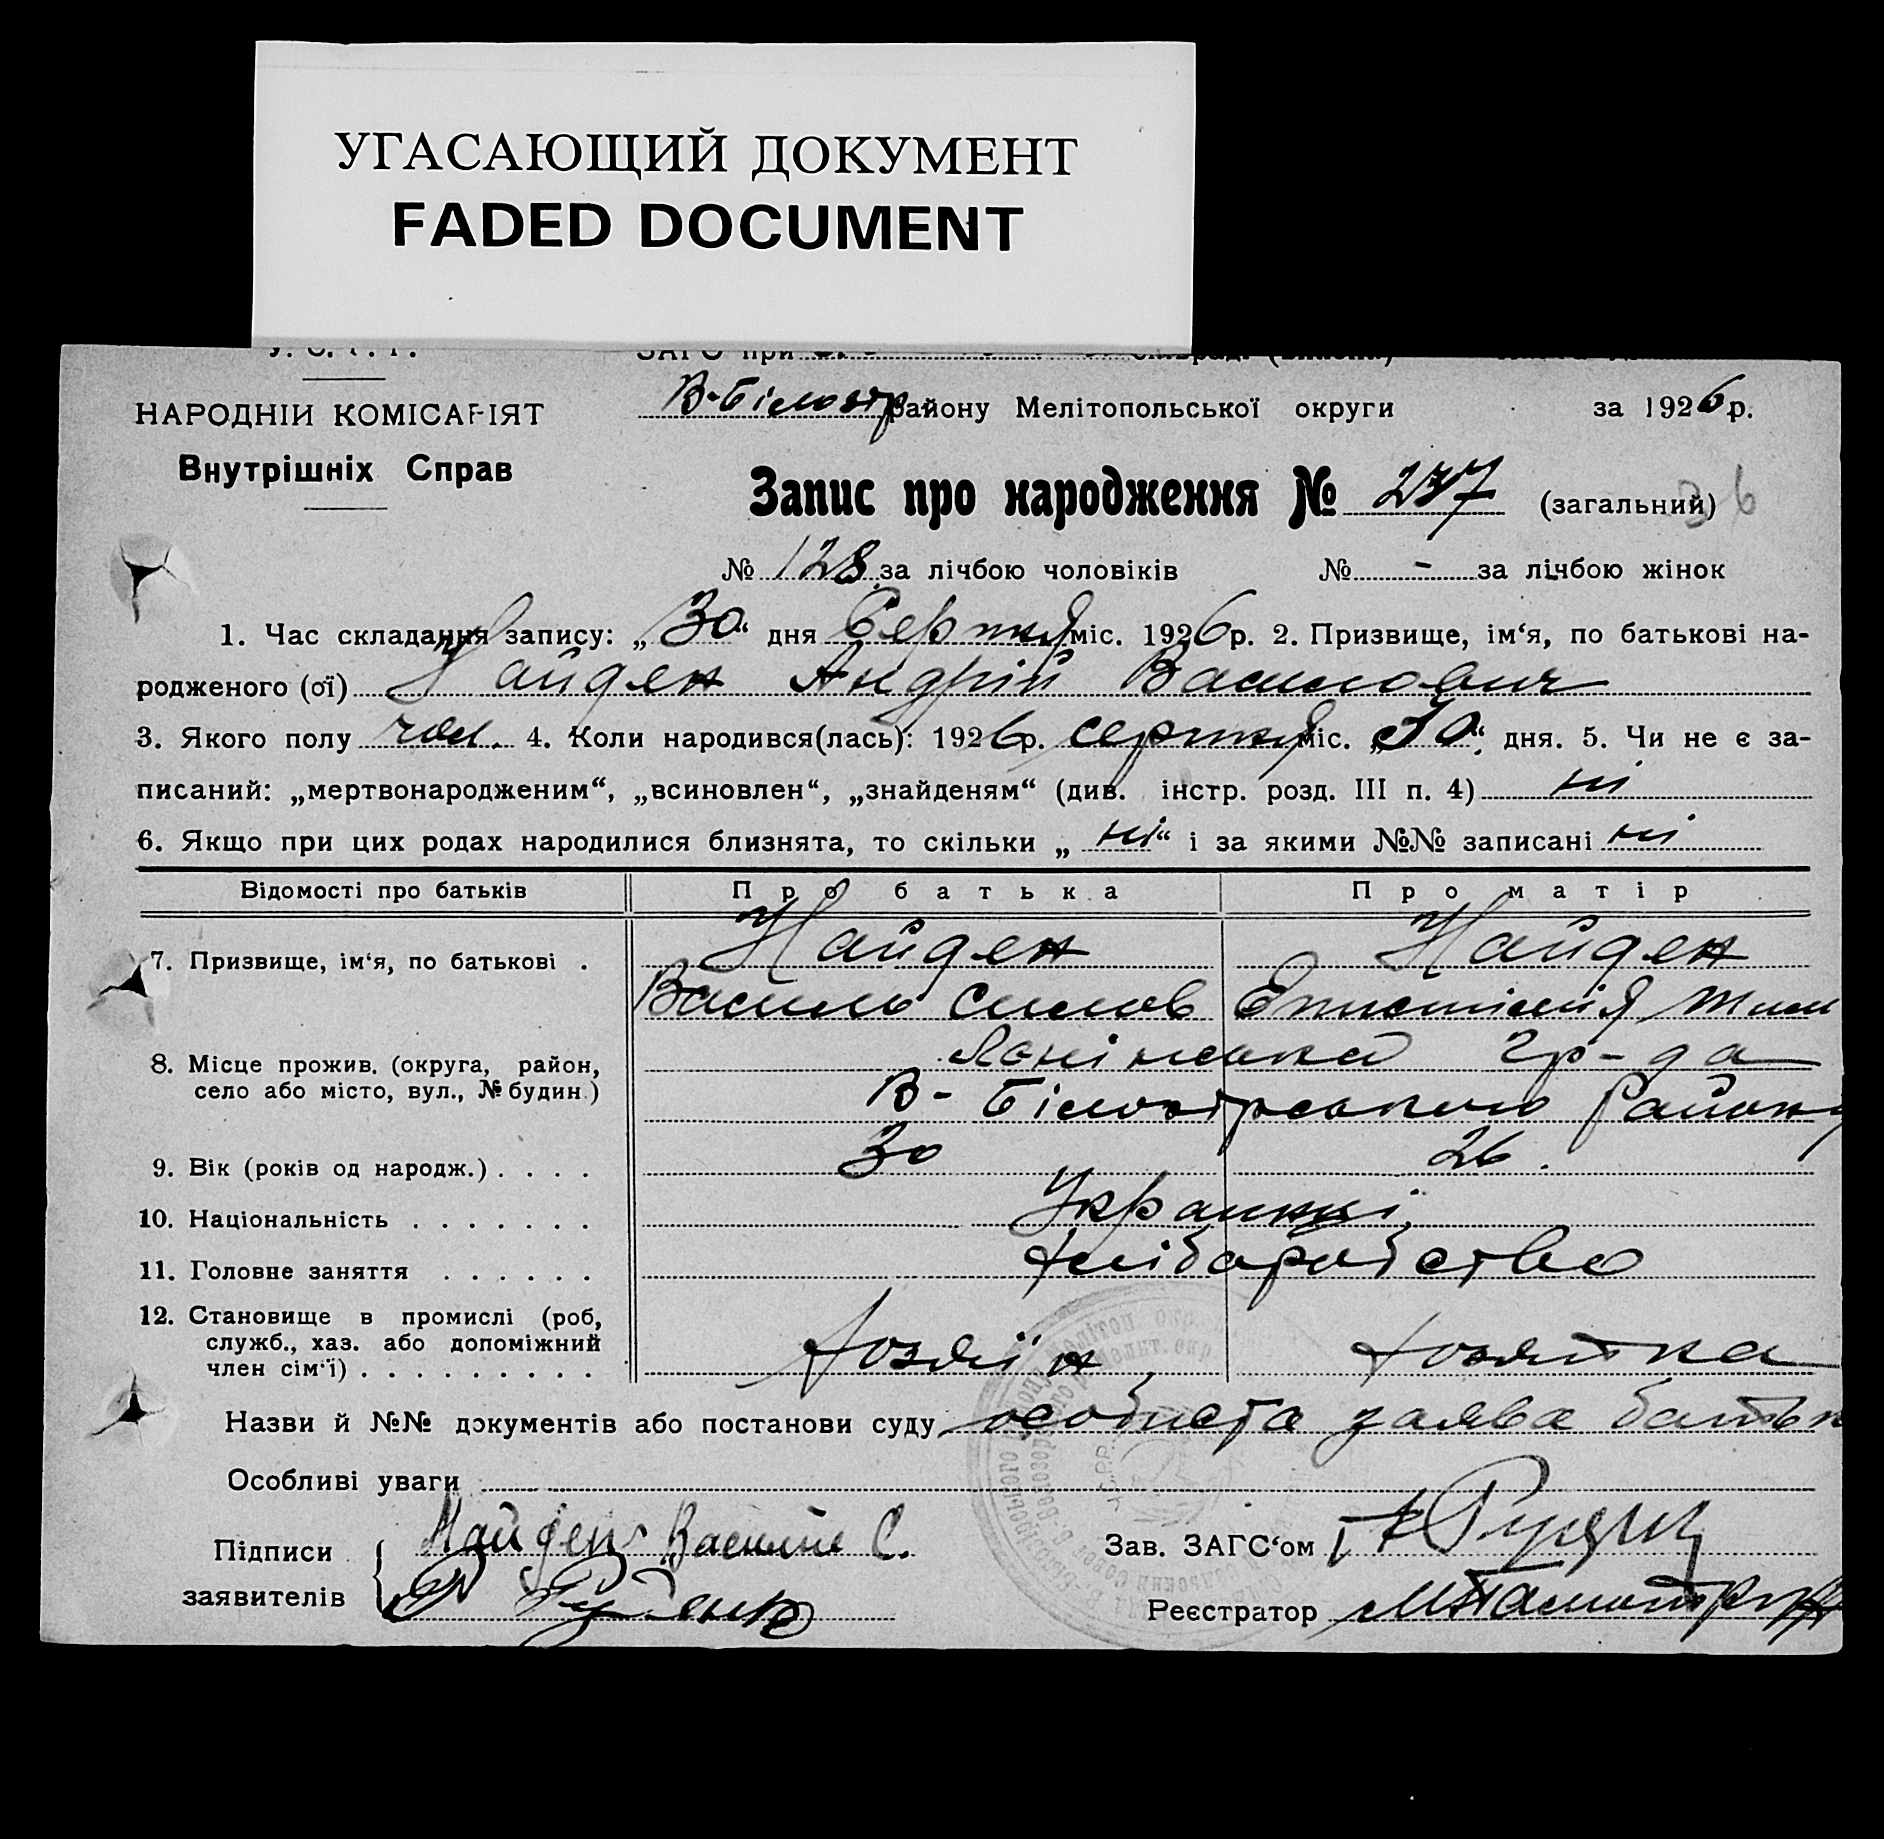 УГАСАЮЩИЙ ДОКУМЕНТ
FADED DOCUMENT
У. С. Р. Р.
ЗАГС при
НАРОДНІЙ КОМІСАРІЯТ
В-Білозір району Мелітопольської округи за 1926 р.
Внутрішніх Справ
Запис про народження № 237 (загальний) 36
№ 128 за лічбою чоловіків № - за лічбою жінок
1. Час складання запису: „30“ дня Серпня міс. 1926 р. 2. Призвище, ім‘я, по батькові на-
родженого (ої) Найден Андрій Василович
3. Якого полу чол. 4. Коли народився(лась): 1926 р. серпня міс. „30“ дня. 5. Чи не є за-
писаний: „мертвонародженим“, „всиновлен“, „знайденям“ (див. інстр. розд. III п. 4) ні
6. Якщо при цих родах народилися близнята, то скільки „ні“ і за якими №№ записані ні
Відомості про батьків Про батька Про матір
7. Призвище, ім‘я, по батькові . Найден Найден
Василь Силов Епистимія Тим
8. Місце прожив. (округа, район, гр-да
село або місто, вул., № будин.) В-Білозірського Району
9. Вік (років од народж.) . . . . 30 26.
10. Національність . . . . . . . Украинці
11. Головне заняття . . . . . . хліборобство
12. Становище в промислі (роб,
служб., хаз. або допоміжний хозяїн хозяйка
член сім‘ї) . . . . . . . . . .
Назви й №№ документів або постанови суду особиста заява батьк
Особливі уваги
Підписи Найден Василь С. Зав. ЗАГС‘ом
заявителів Руденко Реєстратор